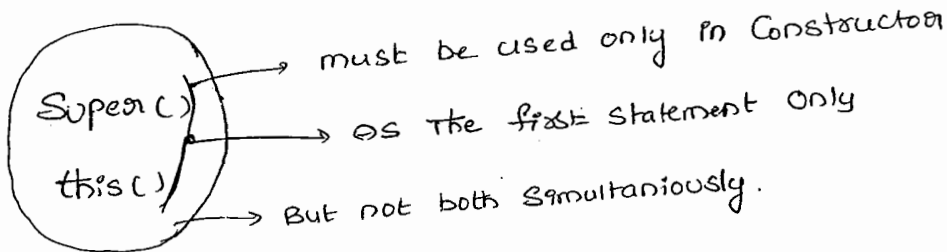 Super()
this()
must be used only in Constructor
as the first statement only
But not both Simultaniously.